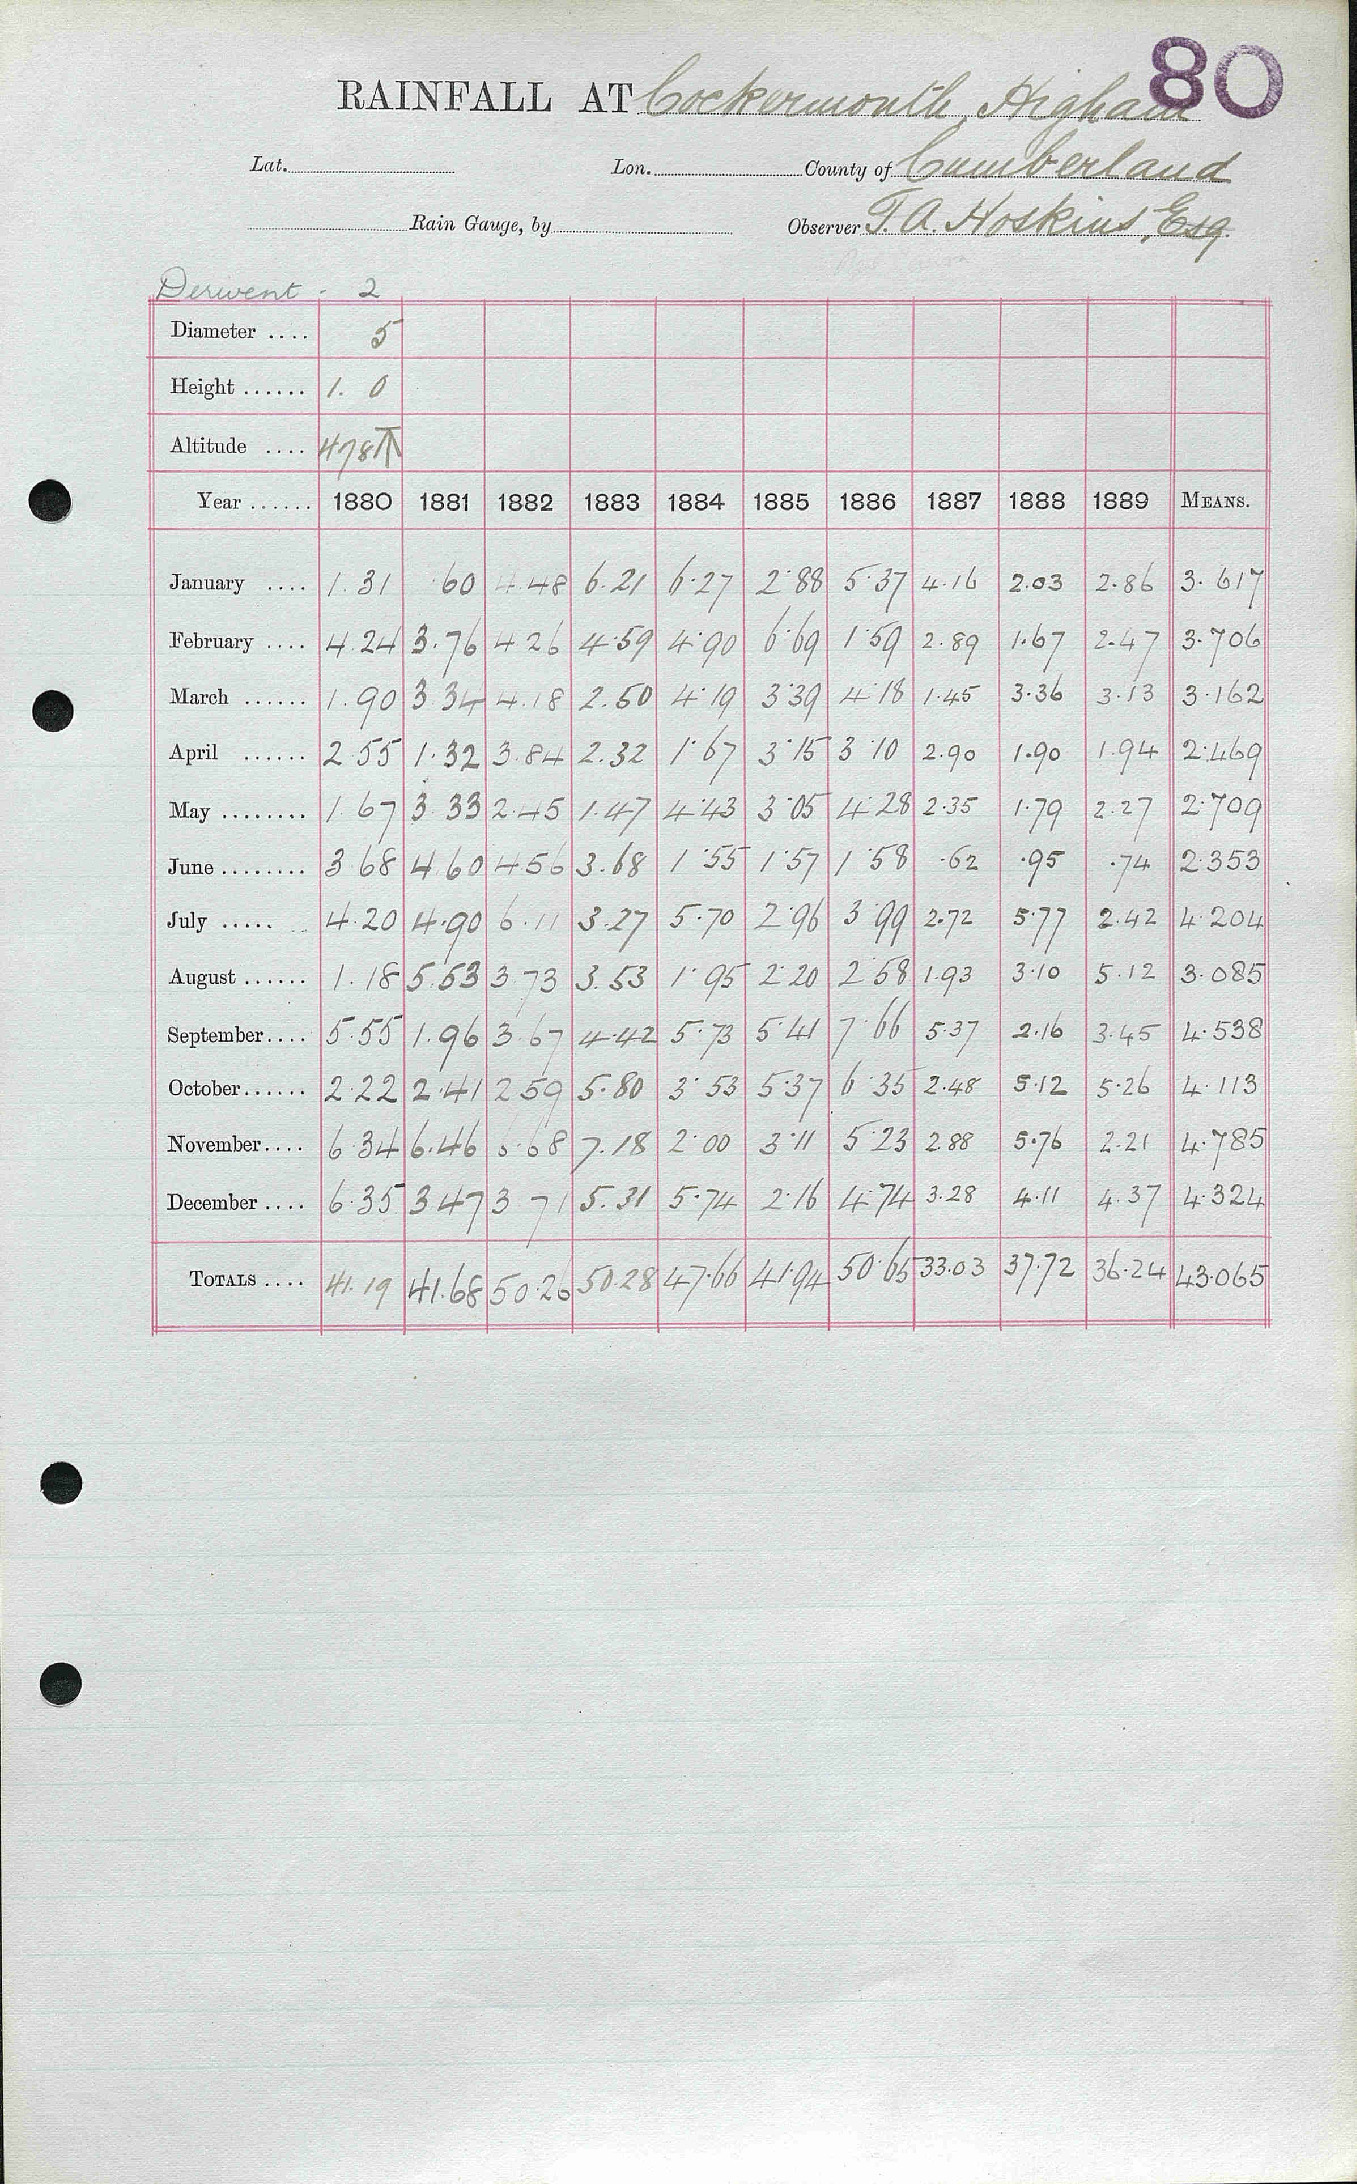 80
RAINFALL AT Cockermouth, Higham
Lat. Lon. County of Cumberland
Rain Gauge, by Observer T. A. Hoskins, Esq.
Derwent - 2
Diameter .... 5
Height ...... 1. 0
Altitude .... 478 T
Year ...... 1880 1881 1882 1883 1884 1885 1886 1887 1888 1889 MEANS.
January .... 1.31 .60 4.48 6.21 6.27 2.88 5.37 4.16 2.03 2.86 3.617
February .... 4.24 3.76 4.26 4.59 4.90 6.69 1.59 2.89 1.67 2.47 3.706
March ...... 1.90 3.34 4.18 2.50 4.19 3.39 4.18 1.45 3.36 3.13 3.162
April ...... 2.55 1.32 3.84 2.32 1.67 3.15 3.10 2.90 1.90 1.94 2.469
May ........ 1.67 3.33 2.45 1.47 4.43 3.05 4.28 2.35 1.79 2.27 2.709
June ........ 3.68 4.60 4.56 3.68 1.55 1.57 1.58 .62 .95 .74 2.353
July ..... 4.20 4.90 6.11 3.27 5.70 2.96 3.99 2.72 5.77 2.42 4.204
August ...... 1.18 5.53 3.73 3.53 1.95 2.20 2.58 1.93 3.10 5.12 3.085
September.... 5.55 1.96 3.67 4.42 5.73 5.41 7.66 5.37 2.16 3.45 4.538
October...... 2.22 2.41 2.59 5.80 3.53 5.37 6.35 2.48 5.12 5.26 4.113
November.... 6.34 6.46 6.68 7.18 2.00 3.11 5.23 2.88 5.76 2.21 4.785
December .... 6.35 3.47 3.71 5.31 5.74 2.16 4.74 3.28 4.11 4.37 4.324
TOTALS .... 41.19 41.68 50.26 50.28 47.66 41.94 50.65 33.03 37.72 36.24 43.065